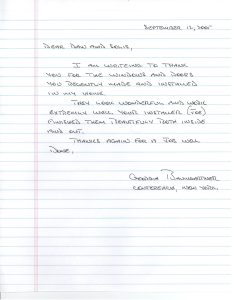 SEPTEMBER 12, 2005
DEAR DAN AND
I AM WRITING TO THANK
YOU FOR THE WINDOWS AND DOORS
YOU RECENTLY MADE AND INSTALLED
IN MY HOME.
THEY LOOK WONDERFUL AND WORK
EXTREMELY WELL. YOUR INSTALLER (JOE)
FINISHED THEM BEAUTIFULLY BOTH INSIDE
AND OUT.
THANKS AGAIN FOR A JOB WELL
DONE,
BAUMGARTNER
NEW YORK